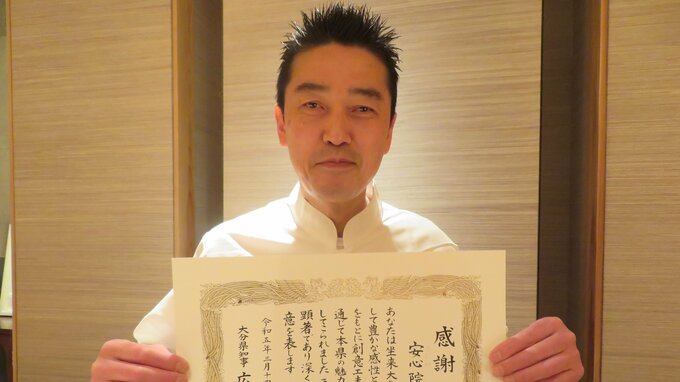 感謝
安心院
あなたは坐来大
して豊かな感性と
をもとに創意工夫
通じて本県の魅力
してこられました
顕著であり深く
意を表します
令和五年三月十
大分県知事 広